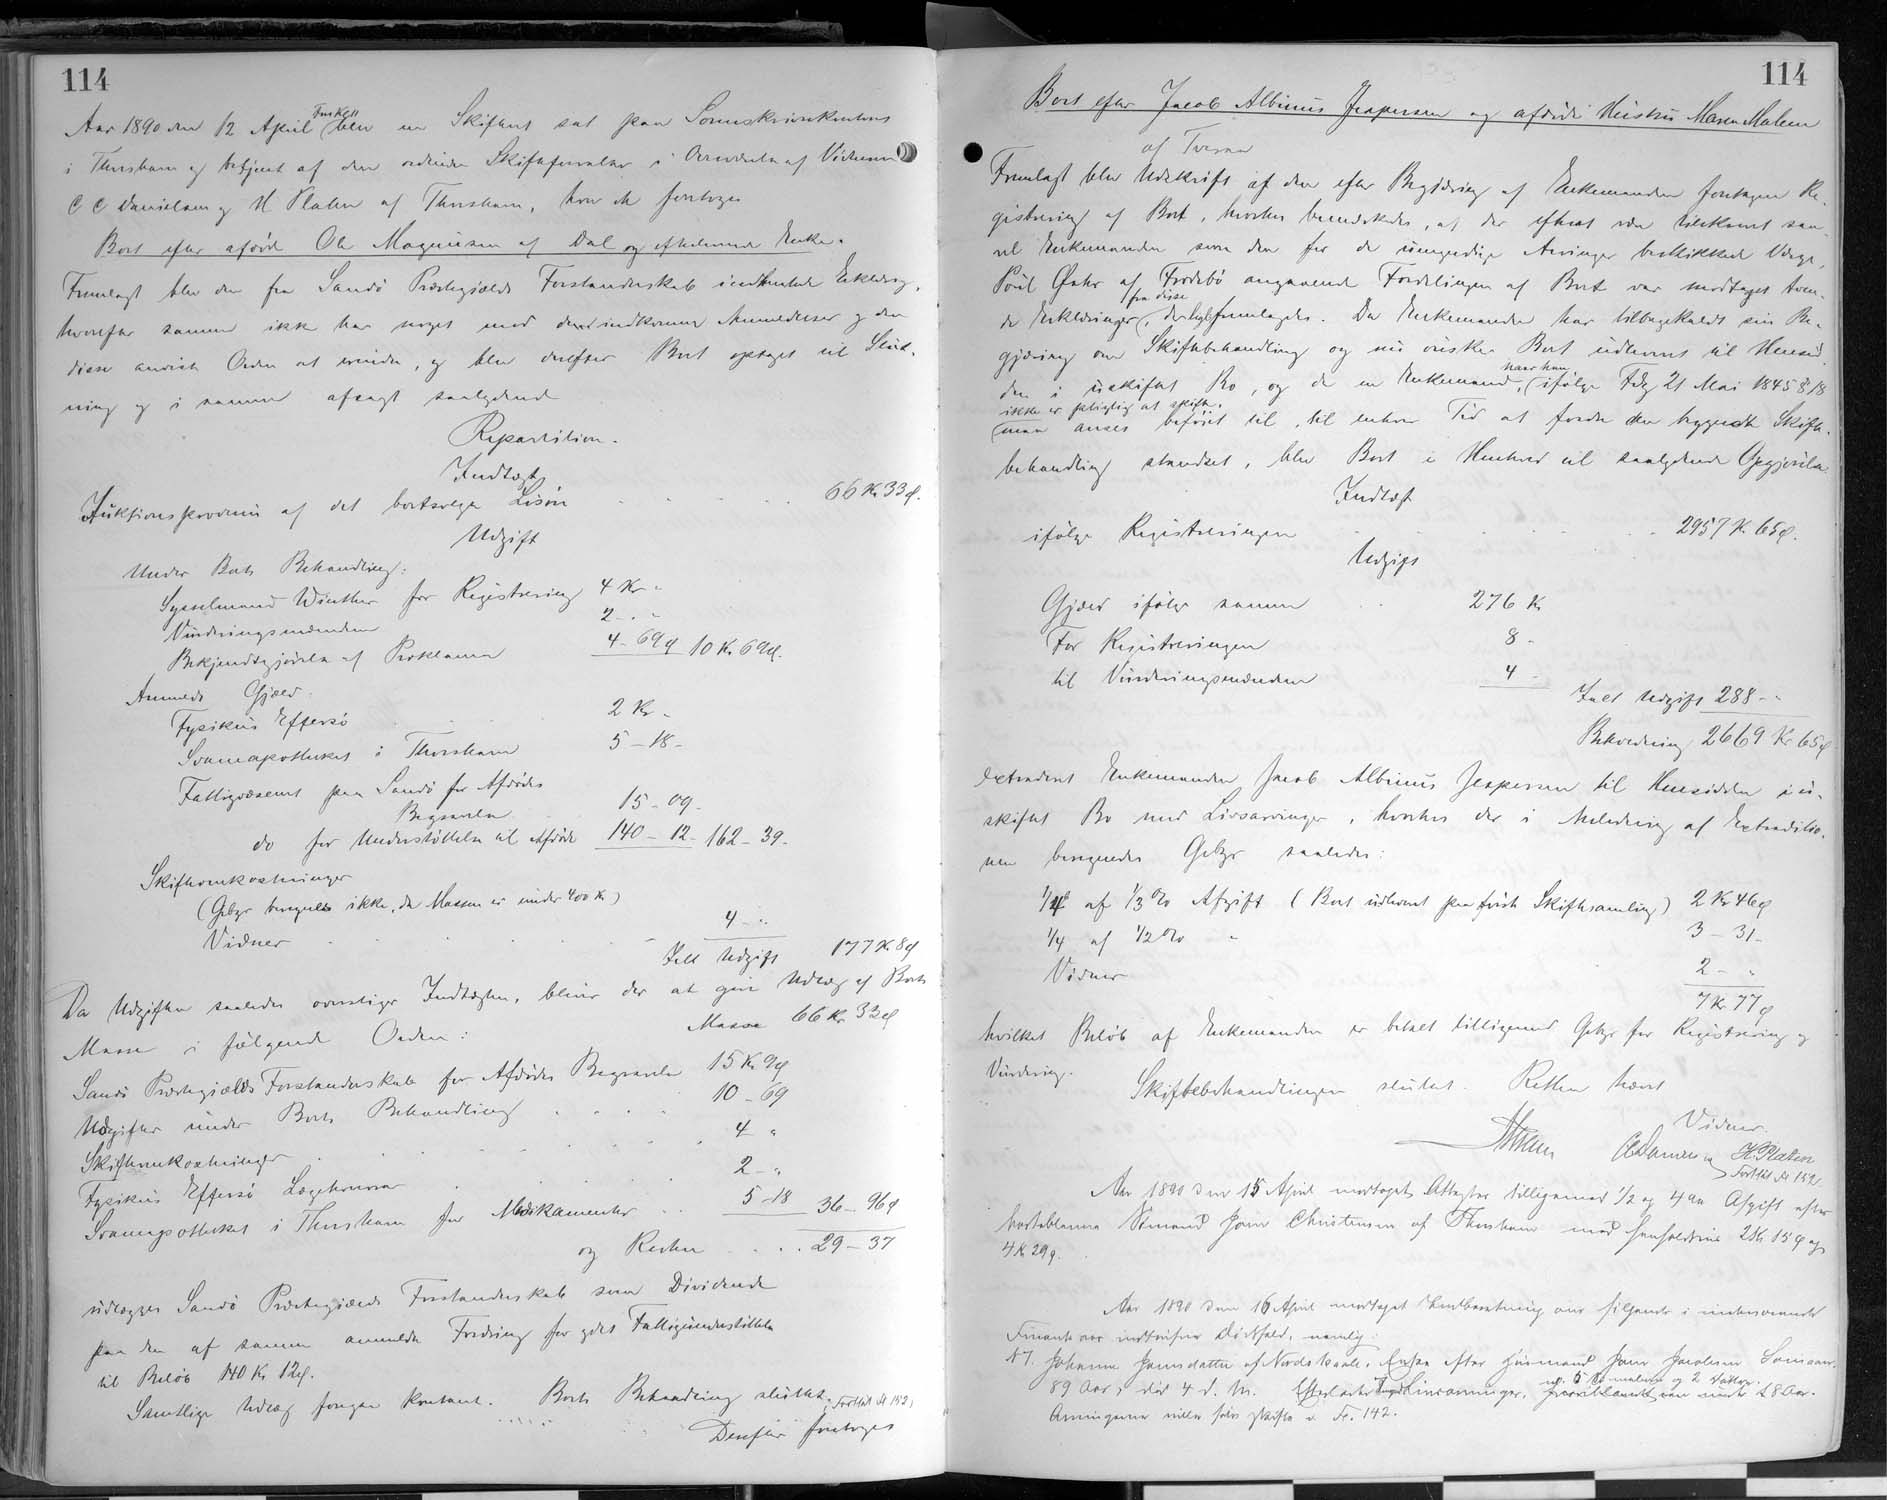 114
Aar 1890 den 12 April blev en Skifteret sat paa Sorenskriverkontoret
i Thorshavn og betjent af den ordinære Skifteforvalter i Overværelse af Vidnerne
C C Danielsen og H Platen af Thorshavn, hvor da foretoges
Boet efter afdøde Ole Magnusen af Dal og efterlevende Enke.
Fremlagt blev den fra Sandø Præstegjælds Forstanderskab indhentede Erklæring,
hvorefter samme ikke har noget mod den indkomne Anmeldelser og den
disse anviste Orden at erindre, og blev derefter Boet optaget til Slut-
ning og i samme afsagt saalydende
Repartition.
Indtægt
Auktionsprovenu af det bortsolgte Løsøre 66 Kr 33 ø.
Udgift
Under Boets Behandling:
Sysselmand Winther for Registrering 4 Kr "
Vurderingsmændene 2 - "
Bekjendtgjørelse af Proklama 4 - 69 ø 10 Kr 69 ø.
Anmeldt Gjæld:
Fysikus Effersø 2 Kr "
Svaneapotheket i Thorshavn 5 - 18 -
Fattigvæsenet paa Sandø for Afdødes
Begravelse 15 - 09 -
do for Understøttelse til Afdøde 140 - 12 - 162 - 39 -
Skifteomkostninger
(Gebyr beregnes ikke, da Massen er under 400 Kr)
Vidner 4 - "
Ialt Udgift 177 Kr 8 ø
Da Udgiften saaledes overstiger Indtægten, bliver der at give Udlæg af Boets
Masse 66 Kr. 33 ø
Masse i følgende Orden:
Sandø Præstegjælds Forstanderskab for Afdødes Begravelse 15 Kr 9 ø
Udgifter under Boets Behandling 10 - 69
Skifteomkostninger 4 "
Fysikus Effersø Lægehonorar 2 - "
Svaneapotheket i Thorshavn for Medikamenter 5 - 18 36 - 96 ø
og Resten 29 - 37
udlægges Sandø Præstegjælds Forstanderskab som Dividende
paa den af samme anmeldte Fordring for ydet Fattigunderstøttelse
til Beløb 140 Kr. 12 ø.
Samtlige Udlæg foregaa kontant. Boets Behandling sluttet. Fortsat Fo 152,
Derefter foretoges
114
Boet efter Jacob Albinus Jespersen og afdøde Hustru Maren Malene
af Tveraa
Fremlagt blev Udskrift af den efter Begjæring af Enkemanden foretagen Re-
gistrering af Boet, hvorhos bemærkedes, at der efterat saa-
vel Enkemanden som den for de umyndige Arvinger beskikkede Værge,
Poul af Frodebø angaaende Fordelingen af Boet var modtaget tven-
de Erklæringer fra disse, der fremlagdes. Da Enkemanden har tilbagekaldt sin Be-
gjæring om Skiftebehandling og nu ønsker Boet udleveret til Hensid-
den i uskiftet Bo, og da en Enkemand, naar han ifølge Fdg 21 Mai 1845 § 18
ikke er pligtig at skifte,
maa anses beføiet til, til enhver Tid at fordre den begyndte Skifte-
behandling standset, blev Boet i Henhold til saalydende Opgjørelse
Indtægt
ifølge Registreringen 2957 Kr. 65 ø.
Udgift
Gjæld ifølge samme 276 Kr
For Registreringen 8 -
til Vurderingsmændene 4 -
Ialt Udgift 288 - "
Beholdning 2669 Kr 65 ø
extraderet Enkemanden Jacob Albinus Jespersen til Hensidden i u-
skiftet Bo med Livsarvinger, hvorhos der i Anledning af Extraditio-
nen beregnedes Gebyr saaledes:
1/4 af 1/3 % Afgift (Boet udleveret paa første Skiftesamling) 2 Kr 46 ø
1/4 af 1/2 % " 3 - 31 -
Vidner 2 - "
7 Kr 77 ø
hvilket Beløb af Enkemanden er betalt tilligemed Gebyr for Registrering og
Vurdering.
Skiftebehandlingen sluttet. Retten hævet
Vidner.
CC Danielsen H. Platen
Fortsat Fo 152.
Aar 1890 den 15 April modtaget Attester tilligemed 1/2 og 4 % Afgift efter
borteblevne Sømand Joen Christensen af Thorshavn med henholdsvis 2 Kr 15 ø og
4 Kr 29 ø.
Aar 1890 den 16 April modtaget Indberetning om følgende i indeværende
Finantsaar indtrufne Dødsfald, nemlig:
№ 1. Johanne Joensdatter af Nordskaale, Enke efter Husmand Joen Jacobsen
89 Aar, død 4 d. M. Efterladte Livsarvinger, 5 Sønner og 2 Døtre, hvoriblandt een under 18 Aar.
Arvingerne ville selv skifte v. Fo. 142.